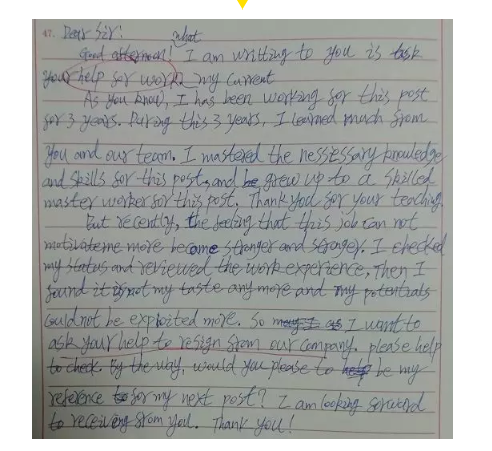 47. Dear Sir:
what
Good afternoon! I am writting to you is task
your help for work. my current
As you know, I has been working for this post
for 3 years. During this 3 years, I learned much from
you and our team. I mastered the nessessary knowledge
and skills for this post, and be grew up to a skilled
master worker for this post. Thank you for your teaching.
But recently, the feeling that this job can not
motivate me more become stronger and stronger. I checked
my status and reviewed the work experience, Then I
found it is not my taste any more and my potentials
could not be exploited more. So I want to
ask your help to resign from our company. please help
to check. By the way, would you please to be my
reference to for my next post? I am looking forword
to receiving from you. Thank you!